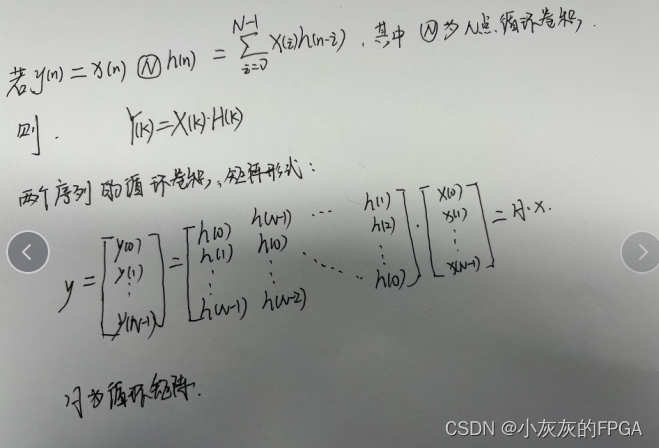 若 y(n) = x(n) Ⓝ h(n) = \sum_{i=0}^{N-1} x(i)h(n-i) . 其中 Ⓝ 为 N点循环卷积.
则. Y(k) = X(k)·H(k)
两个序列的循环卷积, 矩阵形式:
y = [y(0) y(1) ⋮ y(N-1)] = [h(0) h(N-1) ⋯ h(1) h(1) h(0) h(2) ⋮ ⋮ ⋱ ⋮ h(N-1) h(N-2) h(0)] · [x(0) x(1) ⋮ x(N-1)] = H·x.
H为循环矩阵.
CSDN @小灰灰的FPGA